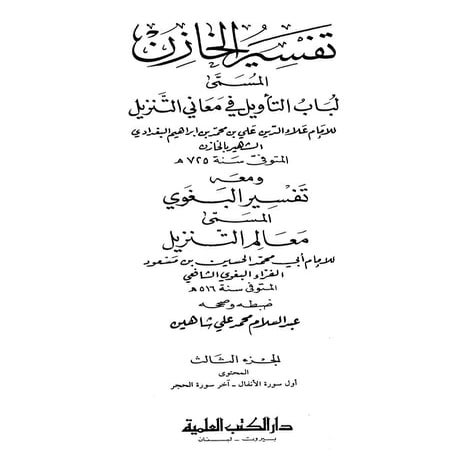 تفسير الخازن
المسمى
لباب التأويل في معاني التنزيل
للإمام علاء الدين علي بن محمد بن ابراهيم البغدادي
الشهير بالخازن
المتوفى سنة ٧٢٥ هـ
ومعه
تفسير البغوي
المسمى
معالم التنزيل
للإمام أبي محمد الحسين بن مسعود
الفراء البغوي الشافعي
المتوفى سنة ٥١٦ هـ
ضبطه وصححه
عبد السلام محمد علي شاهين
الجزء الثالث
المحتوى
أول سورة الأنفال - آخر سورة الحجر
دار الكتب العلمية
بيروت - لبنان